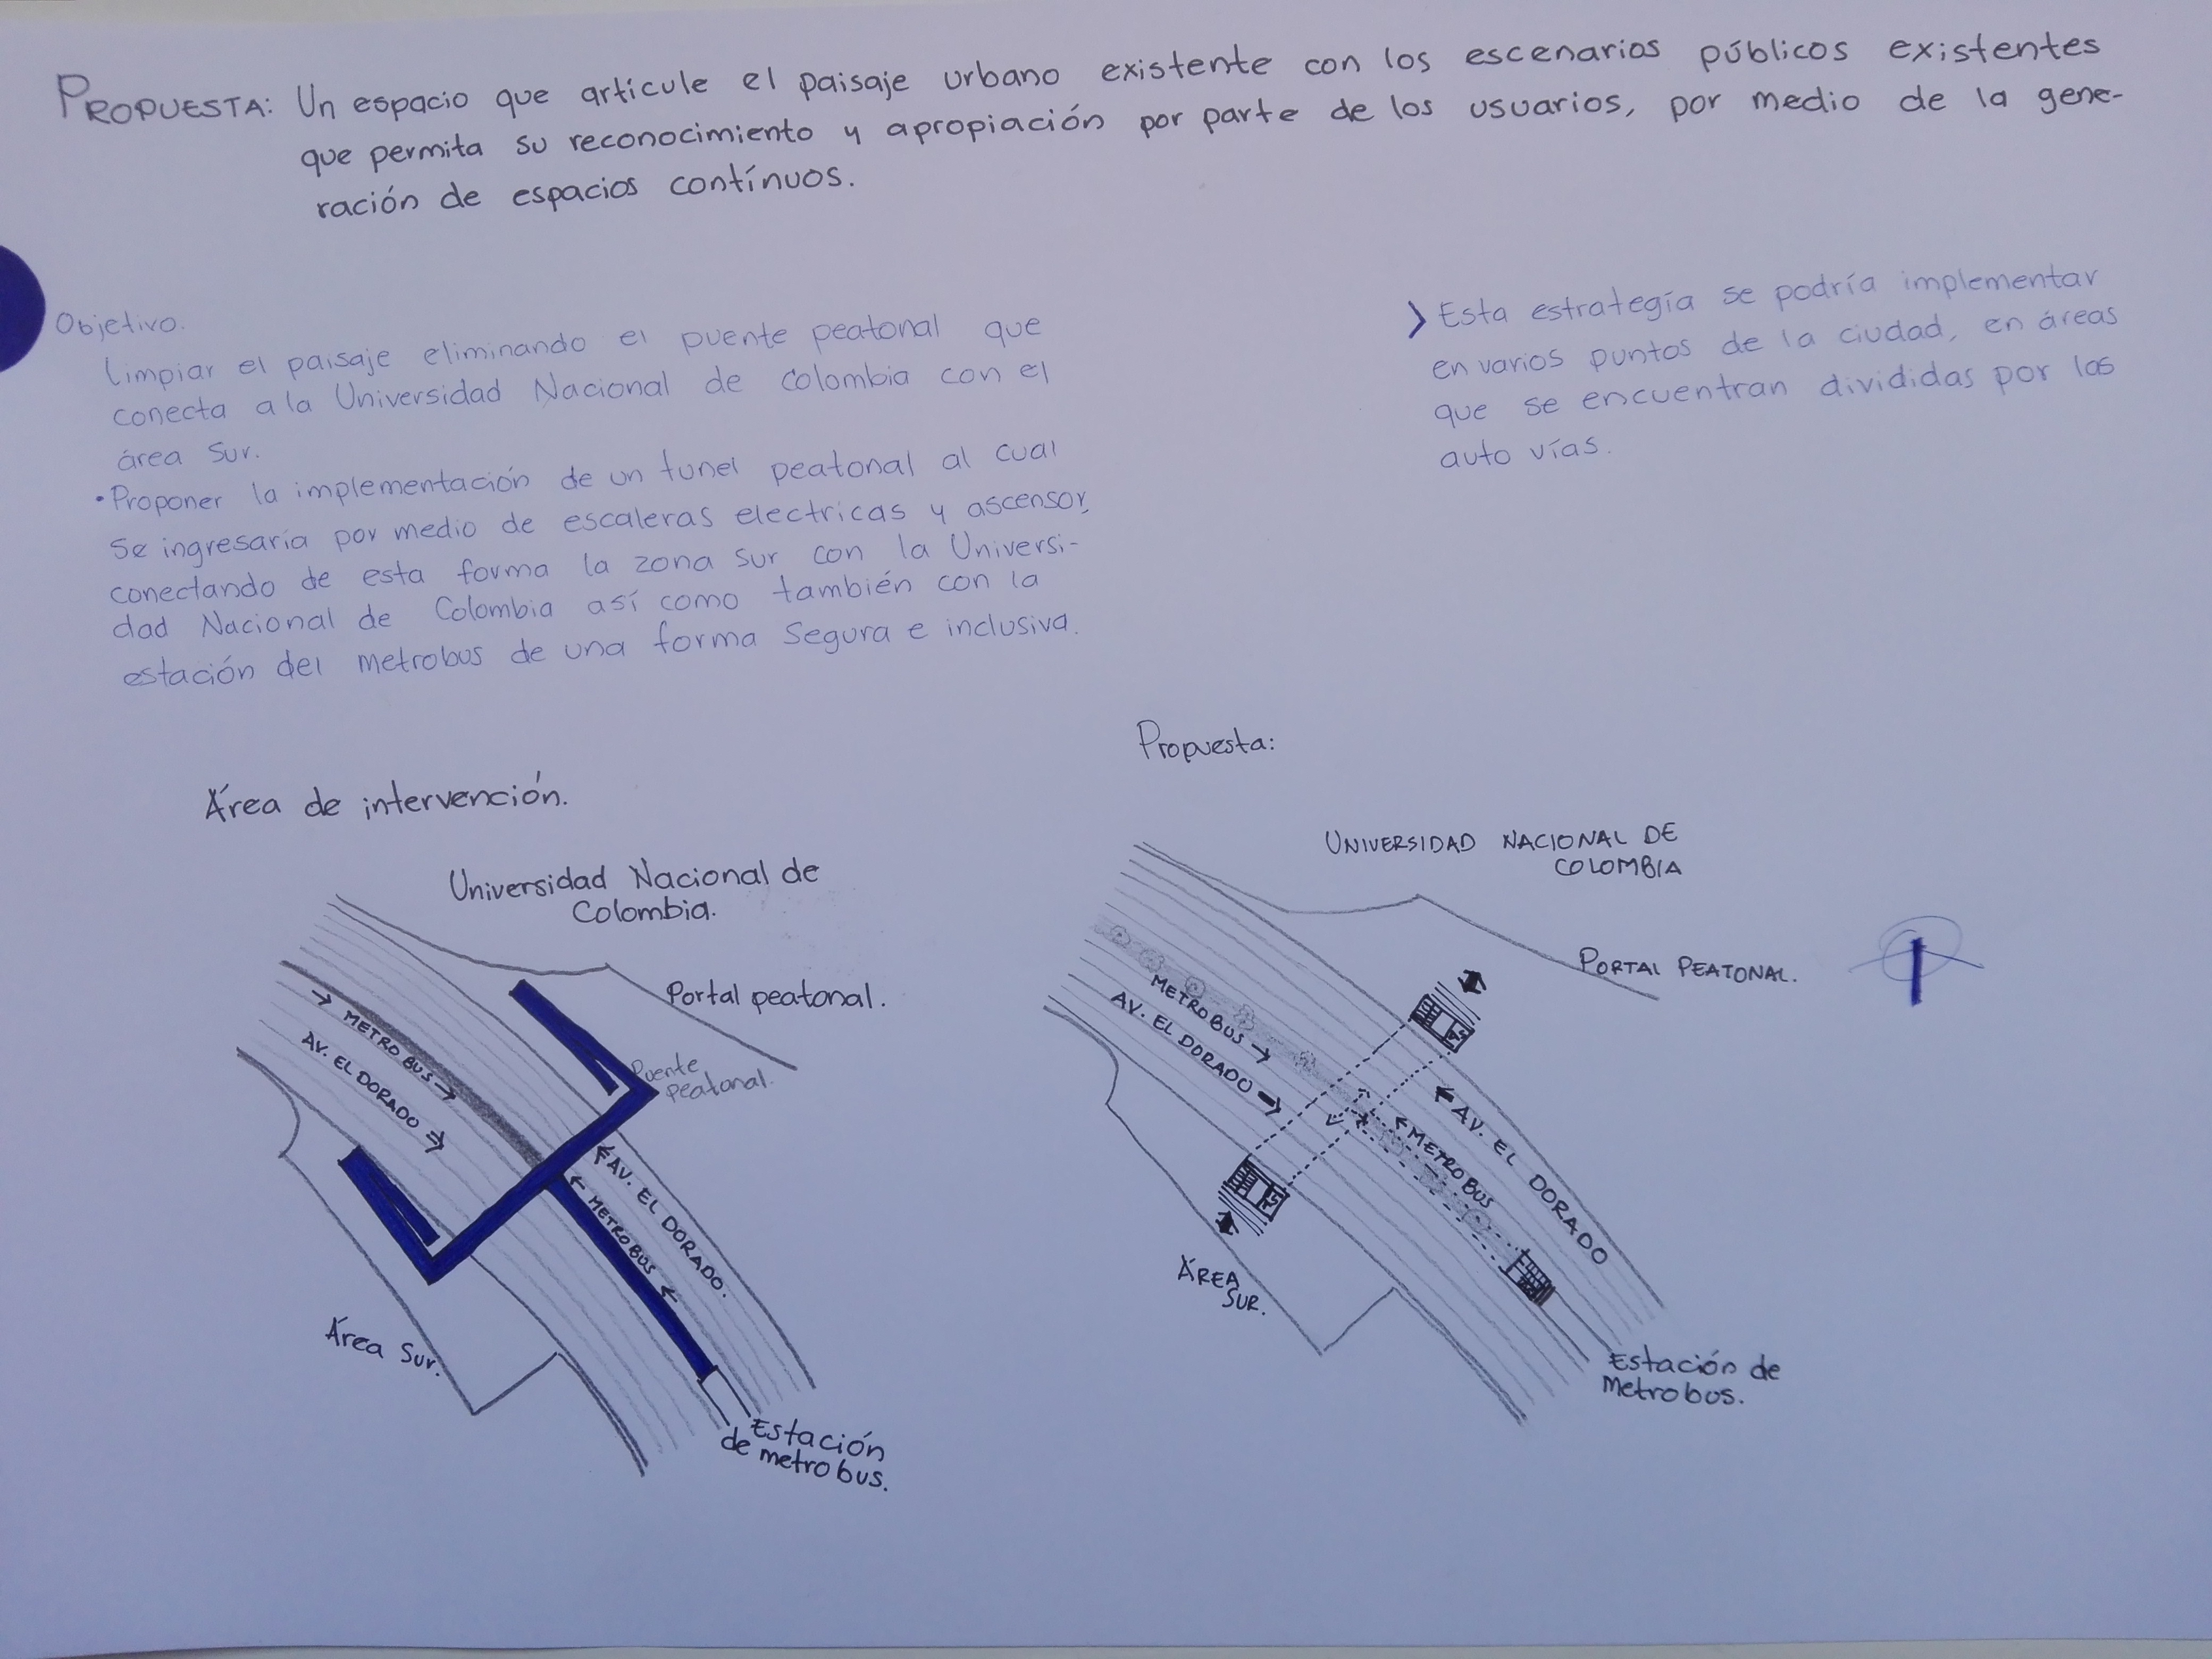 PROPUESTA: Un espacio que artícule el paisaje urbano existente con los escenarios públicos existentes
que permita su reconocimiento y apropiación por parte de los usuarios, por medio de la gene-
ración de espacios contínuos.
Objetivo.
Limpiar el paisaje eliminando el puente peatonal que
conecta a la Universidad Nacional de Colombia con el
área Sur.
• Proponer la implementación de un tunel peatonal al cual
se ingresaría por medio de escaleras electricas y ascensor,
conectando de esta forma la zona sur con la Universi-
dad Nacional de Colombia así como también con la
estación del metrobus de una forma segura e inclusiva.
> Esta estrategía se podría implementar
en varios puntos de la ciudad, en áreas
que se encuentran divididas por las
auto vías.
Área de intervención.
Universidad Nacional de
Colombia.
Portal peatonal.
Puente
peatonal.
→ METROBUS →
AV. EL DORADO →
← AV. EL DORADO.
← METROBUS ←
Área Sur.
Estación
de metrobus.
Propuesta:
UNIVERSIDAD NACIONAL DE
COLOMBIA
PORTAL PEATONAL.
METROBUS →
AV. EL DORADO →
← AV. EL DORADO
← METROBUS
ÁREA
SUR.
Estación de
Metrobus.